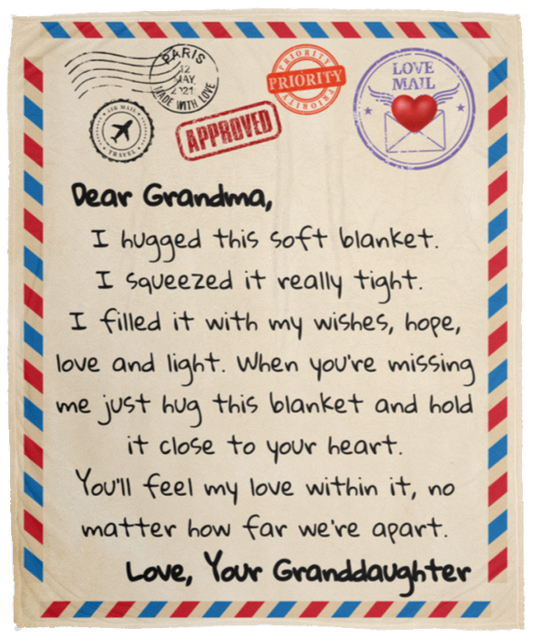 PARIS
12
MAY
2021
MADE WITH LOVE
AIR MAIL
TRAVEL
APPROVED
PRIORITY
PRIORITY
PRIORITY
LOVE
MAIL
Dear Grandma,
I hugged this soft blanket.
I squeezed it really tight.
I filled it with my wishes, hope,
love and light. When you're missing
me just hug this blanket and hold
it close to your heart.
You'll feel my love within it, no
matter how far we're apart.
Love, Your Granddaughter